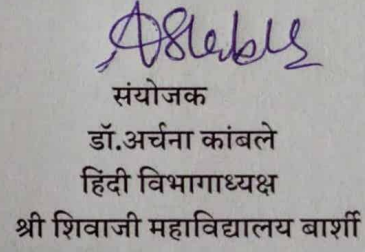 संयोजक
डॉ.अर्चना कांबले
हिंदी विभागाध्यक्ष
श्री शिवाजी महाविद्यालय बार्शी